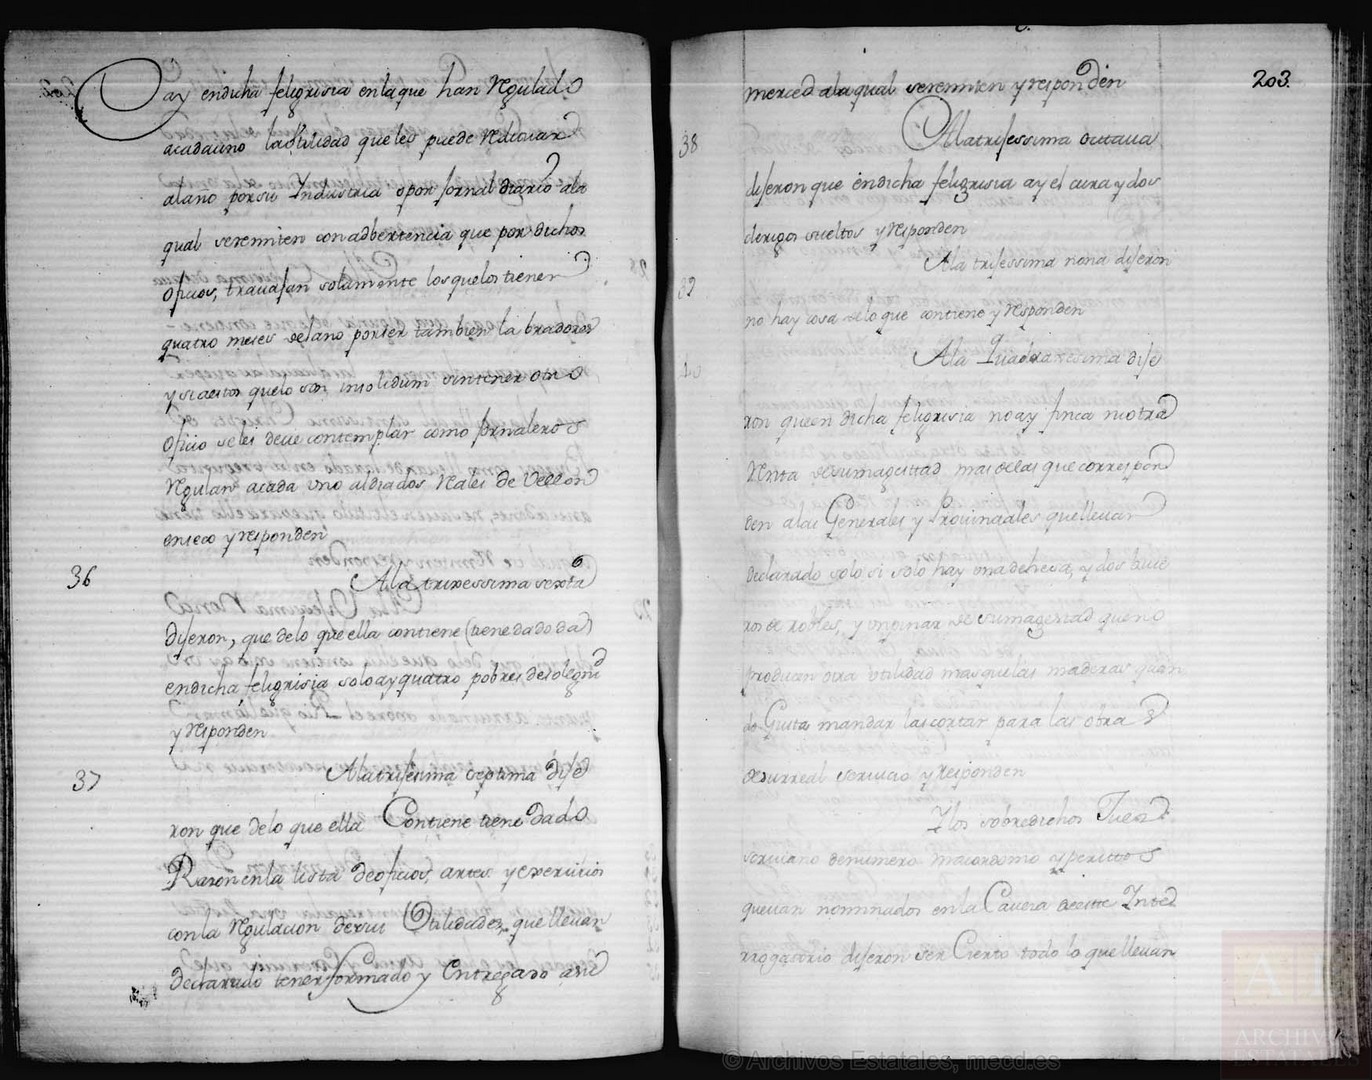 ay endicha feligrisia enlaque han Regulado
acadauno la Utilidad queles puede Redituar
alaño porsu Industria o por Jornal diario ala
qual seremiten con adbertencia que por dichos
oficios, travajan solamente los quelos tienen
quatro meses delaño porser tambien labradores
y siaestos quelo son insolidum sintener otro
oficio seles deve contemplar como Jornaleros
Regulan acada uno aldia dos Reales de Vellon
enseco y responden
36
Ala trixessima sexta
dijeron, que delo que ella contiene (tiene dado da)
endicha feligrisia solo ay quatro pobres desolegni
y responden
37
Ala trisesima septima dije
ron que delo que ella Contiene tiene dado
Razon enla lista de oficios, artes y exercicios
conla Regulacion desus Utilidades, que llevan
declarado tener formado y Entregado asu
203.
merced ala qual seremiten y responden
38
Ala trisessima octava
dijeron que endicha feligrisia ay el cura y dos
clerigos sueltos y responden
39
Ala trisessima nona dijeron
no hay cosa delo que contiene y responden
40
Ala Quadraxesima dije
ron que en dicha feligrisia no ay finca ni otra
Renta desumagestad mas delas que correspon
den alas Generales y Provinciales que llevan
declarado solo si solo hay una dehesa, y dos
ros de robles, y un pinar de sumagestad que no
produan otra utilidad mas que las maderas quan
do Gusta mandar las cortar para las obras
desurreal servicio y responden
Y los sobredichos Juez
escrivano denumero maiordomo y peritos
quevan nominados en la Caveza deeste Inter
rrogatorio dijeron ser Cierto todo lo que llevan
© Archivos Estatales, mecd.es
ARCHIVOS
ESTATALES